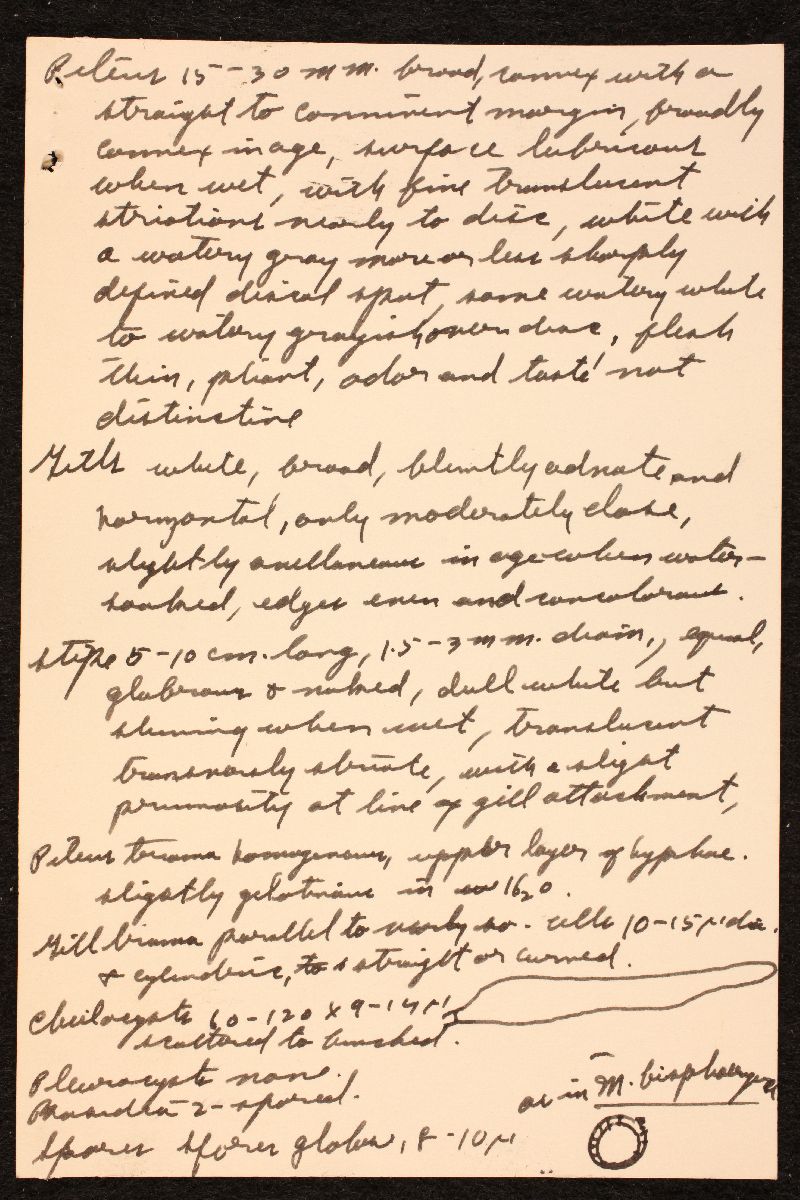 Pileus 15-30 mm. broad, convex with a
straight to connivent margin, broadly
convex in age, surface lubricous
when wet, with fine translucent
striations nearly to disc, white with
a watery gray more or less sharply
defined discal spot, some watery white
to watery grayish over disc, flesh
thin, pliant, odor and taste not
distinctive
Gills white, broad, bluntly adnate and
horizontal, only moderately close,
slightly avellaneous in age when water-
soaked, edges even and concolorous.
Stipe 5-10 cm. long, 1.5-3 mm. diam., equal,
glabrous & naked, dull white but
shining when wet, translucent
transversly striate, with a slight
pruinosity at line of gill attachment,
Pileus trama homogeneous, upper layer of hyphae.
slightly gelatinous in H2O.
Gill trama parallel to nearly so. cells 10-15 µ dia.
& cylindric, straight or curved.
Cheilocysts 60-120 x 9-14 µ
scattered to bunched.
Pleurocysts none.
Basidia 2-spored.
as in M. bisphaerigera
Spores spores globose, 8-10 µ